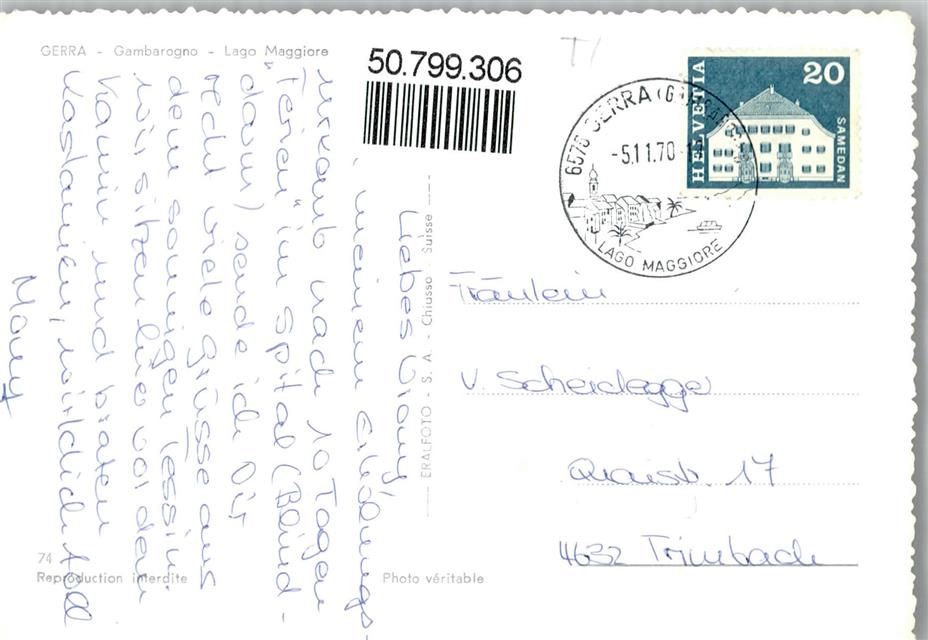 GERRA - Gambarogno - Lago Maggiore
50.799.306
HELVETIA
20
SAMEDAN
6576 GERRA (GAMBAROGNO)
-5.11.70-
LAGO MAGGIORE
Liebes
meinem Erholungs-
urlaub nach 10 Tagen
"Ferien" im Spital (Blind-
darm) sende ich Dir
recht viele Grüsse aus
dem sonnigen Tessin.
Wir sitzen hier vor dem
Kamin und braten
Kastanien, wirklich toll
ERALFOTO - S. A. - Chiasso - Suisse
Fräulein
V. Scheidegger
Quaistr. 17
4632 Trimbach
74
Reproduction interdite
Photo véritable